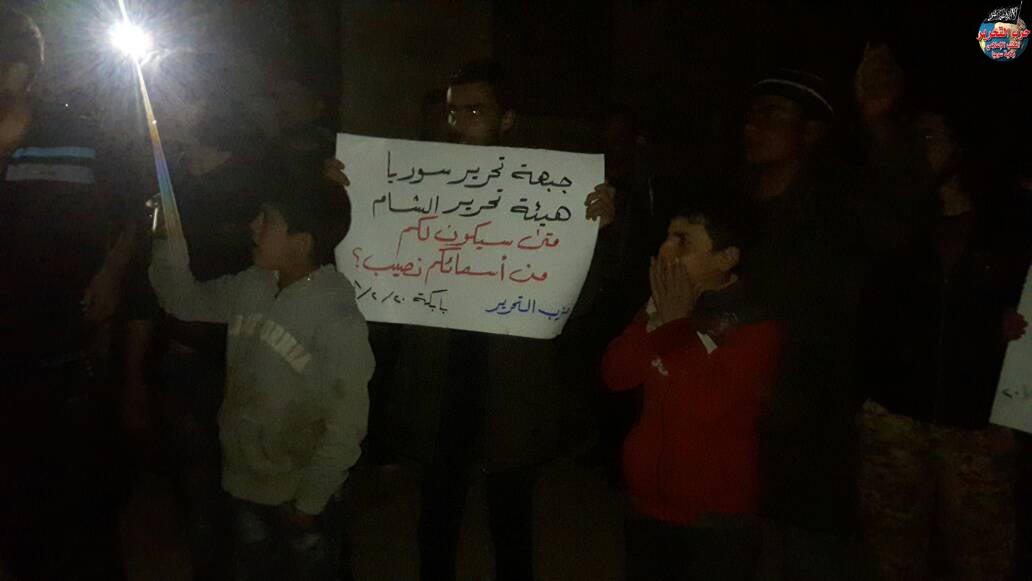 جبهة تحرير سوريا
هيئة تحرير الشام
متى سيكون لكم
من أسمائكم نصيب؟
حزب التحرير بابكة
حزب التحرير
المكتب الإعلامي